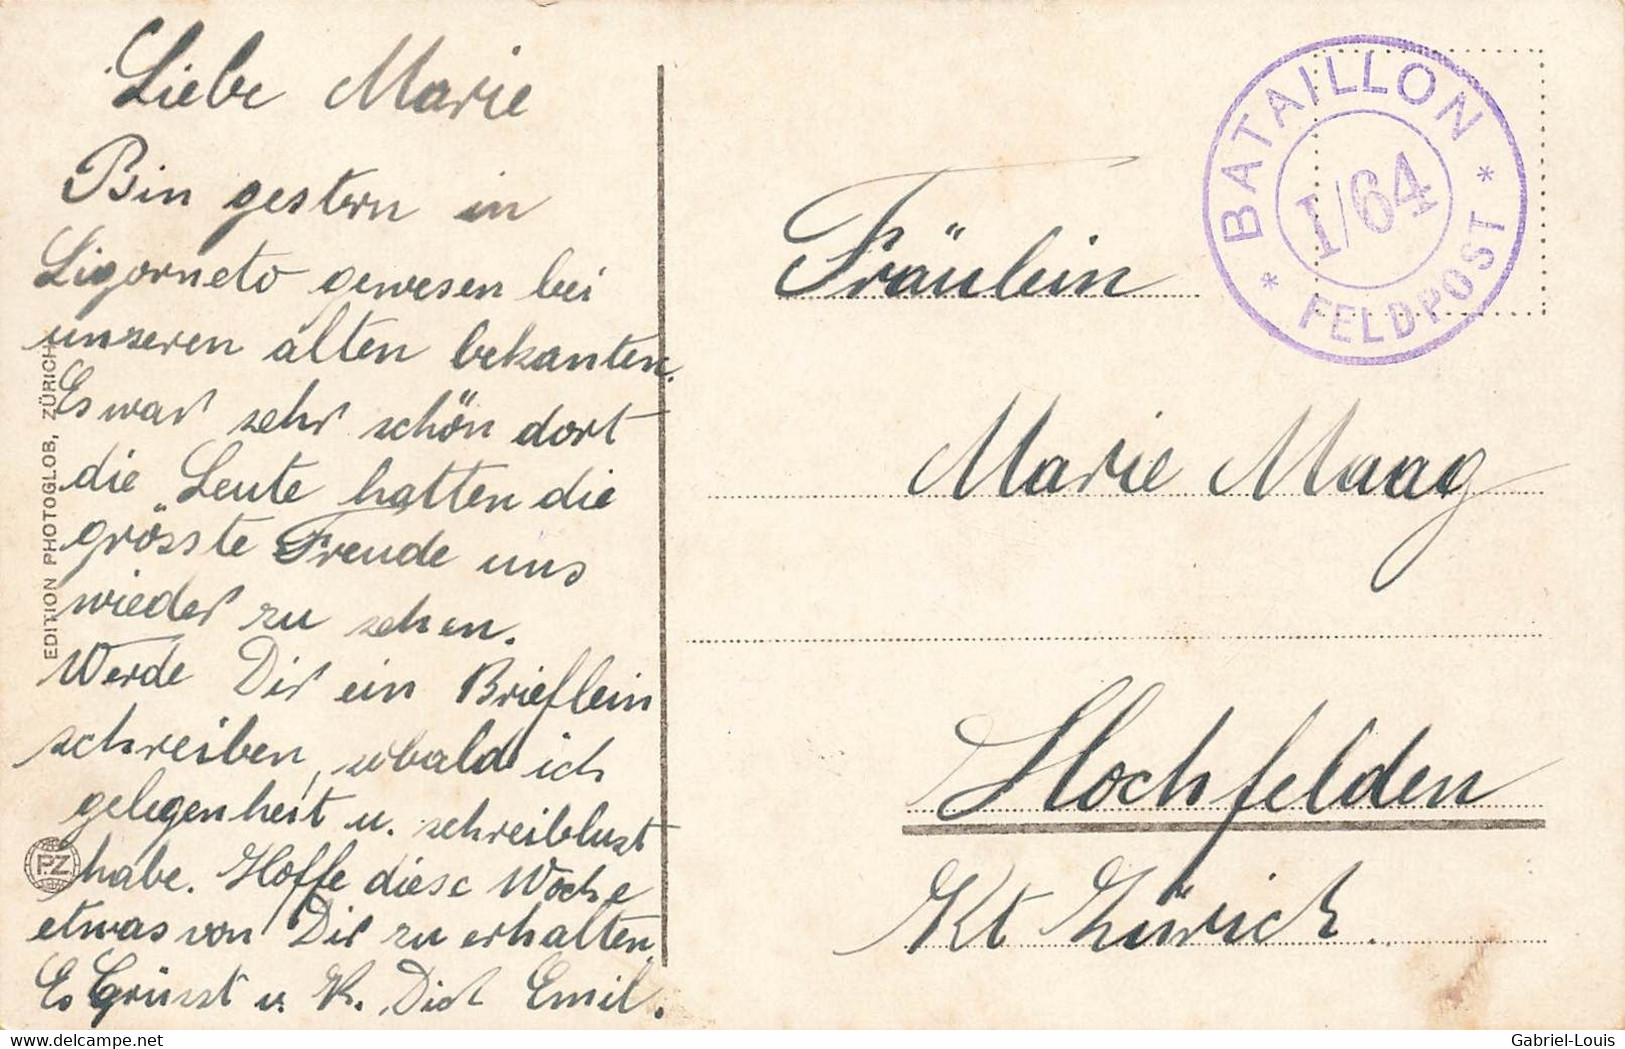 Liebe Marie
Bin gestern in
Ligorneto gewesen bei
unseren alten bekanten.
Es war sehr schön dort
die Leute hatten die
grösste Freude uns
wieder zu sehen.
Werde Dir ein Brieflein
schreiben, sobald ich
gelegenheit u. schreiblust
habe. Hoffe diese Woche
etwas von Dir zu erhalten.
Es Grüsst u. K. Dich Emil.
EDITION PHOTOGLOB, ZÜRICH
P.Z
BATAILLON
I/64
* FELDPOST *
Fräulein
Marie Maag
Hochfelden
Kt Zürich.
delcampe.net
Gabriel-Louis